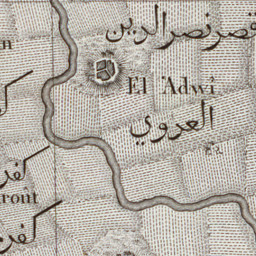 قصر نصر الدين
El 'Adwi
العزوي
كفر
ront
كفر